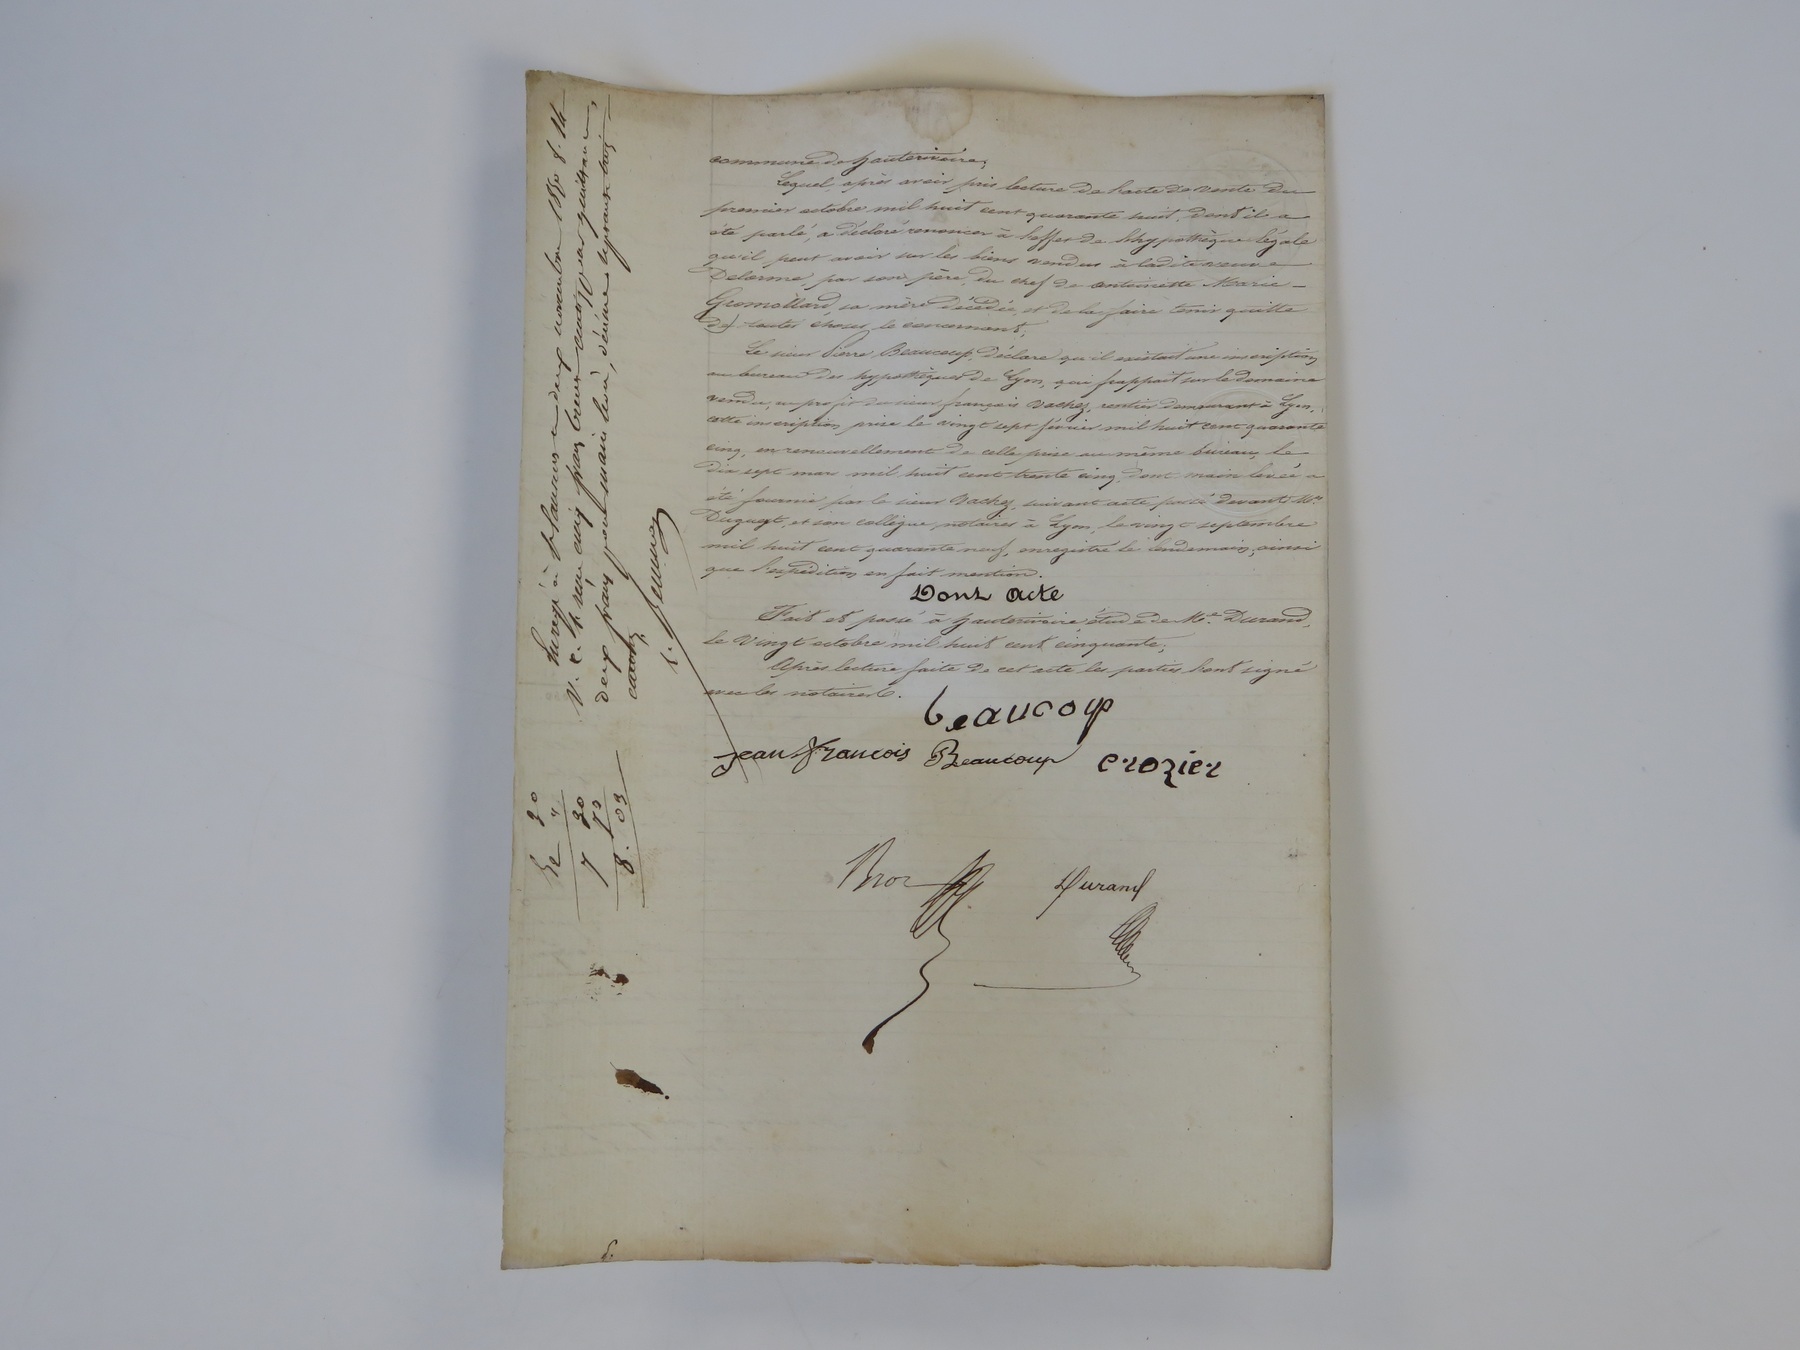 commune de hauterivoire,
Lequel, après avoir pris lecture de l'acte de vente du
premier octobre mil huit cent quarante huit, dont il a
été parlé, a déclaré renoncer à l'effet de l'hypothèque légale
qu'il peut avoir sur les biens vendus à ladite veuve
Delorme, par son père, du chef de antoinette Marie
Gromollard, sa mère décédée, et de la faire tenir quitte
de toutes choses le concernant.
Le sieur Pierre Beaucoup, déclare qu'il existait une inscription
au bureau des hypothèques de Lyon, qui frappait sur le domaine
vendu, au profit du sieur françois Vachez, rentier demeurant à Lyon,
cette inscription prise le vingt sept février mil huit cent quarante
cinq, en renouvellement de celle prise au même bureau, le
dix sept mars mil huit cent trente cinq, dont main levée a
été fournie par le sieur Vachez, suivant acte passé devant Me
Duguet, et son collègue, notaires à Lyon, le vingt septembre
mil huit cent quarante neuf, enregistré le lendemain, ainsi
que l'expédition en fait mention.
Dont acte
Fait et passé à hauterivoire étude de Me Durand,
le Vingt octobre mil huit cent cinquante,
Après lecture faite de cet acte les parties l'ont signé
avec les notaires.
beaucoup
Jean françois Beaucoup crozier
Durand
deux novembre 1850 f. 14
deux francs pour main levée, décime